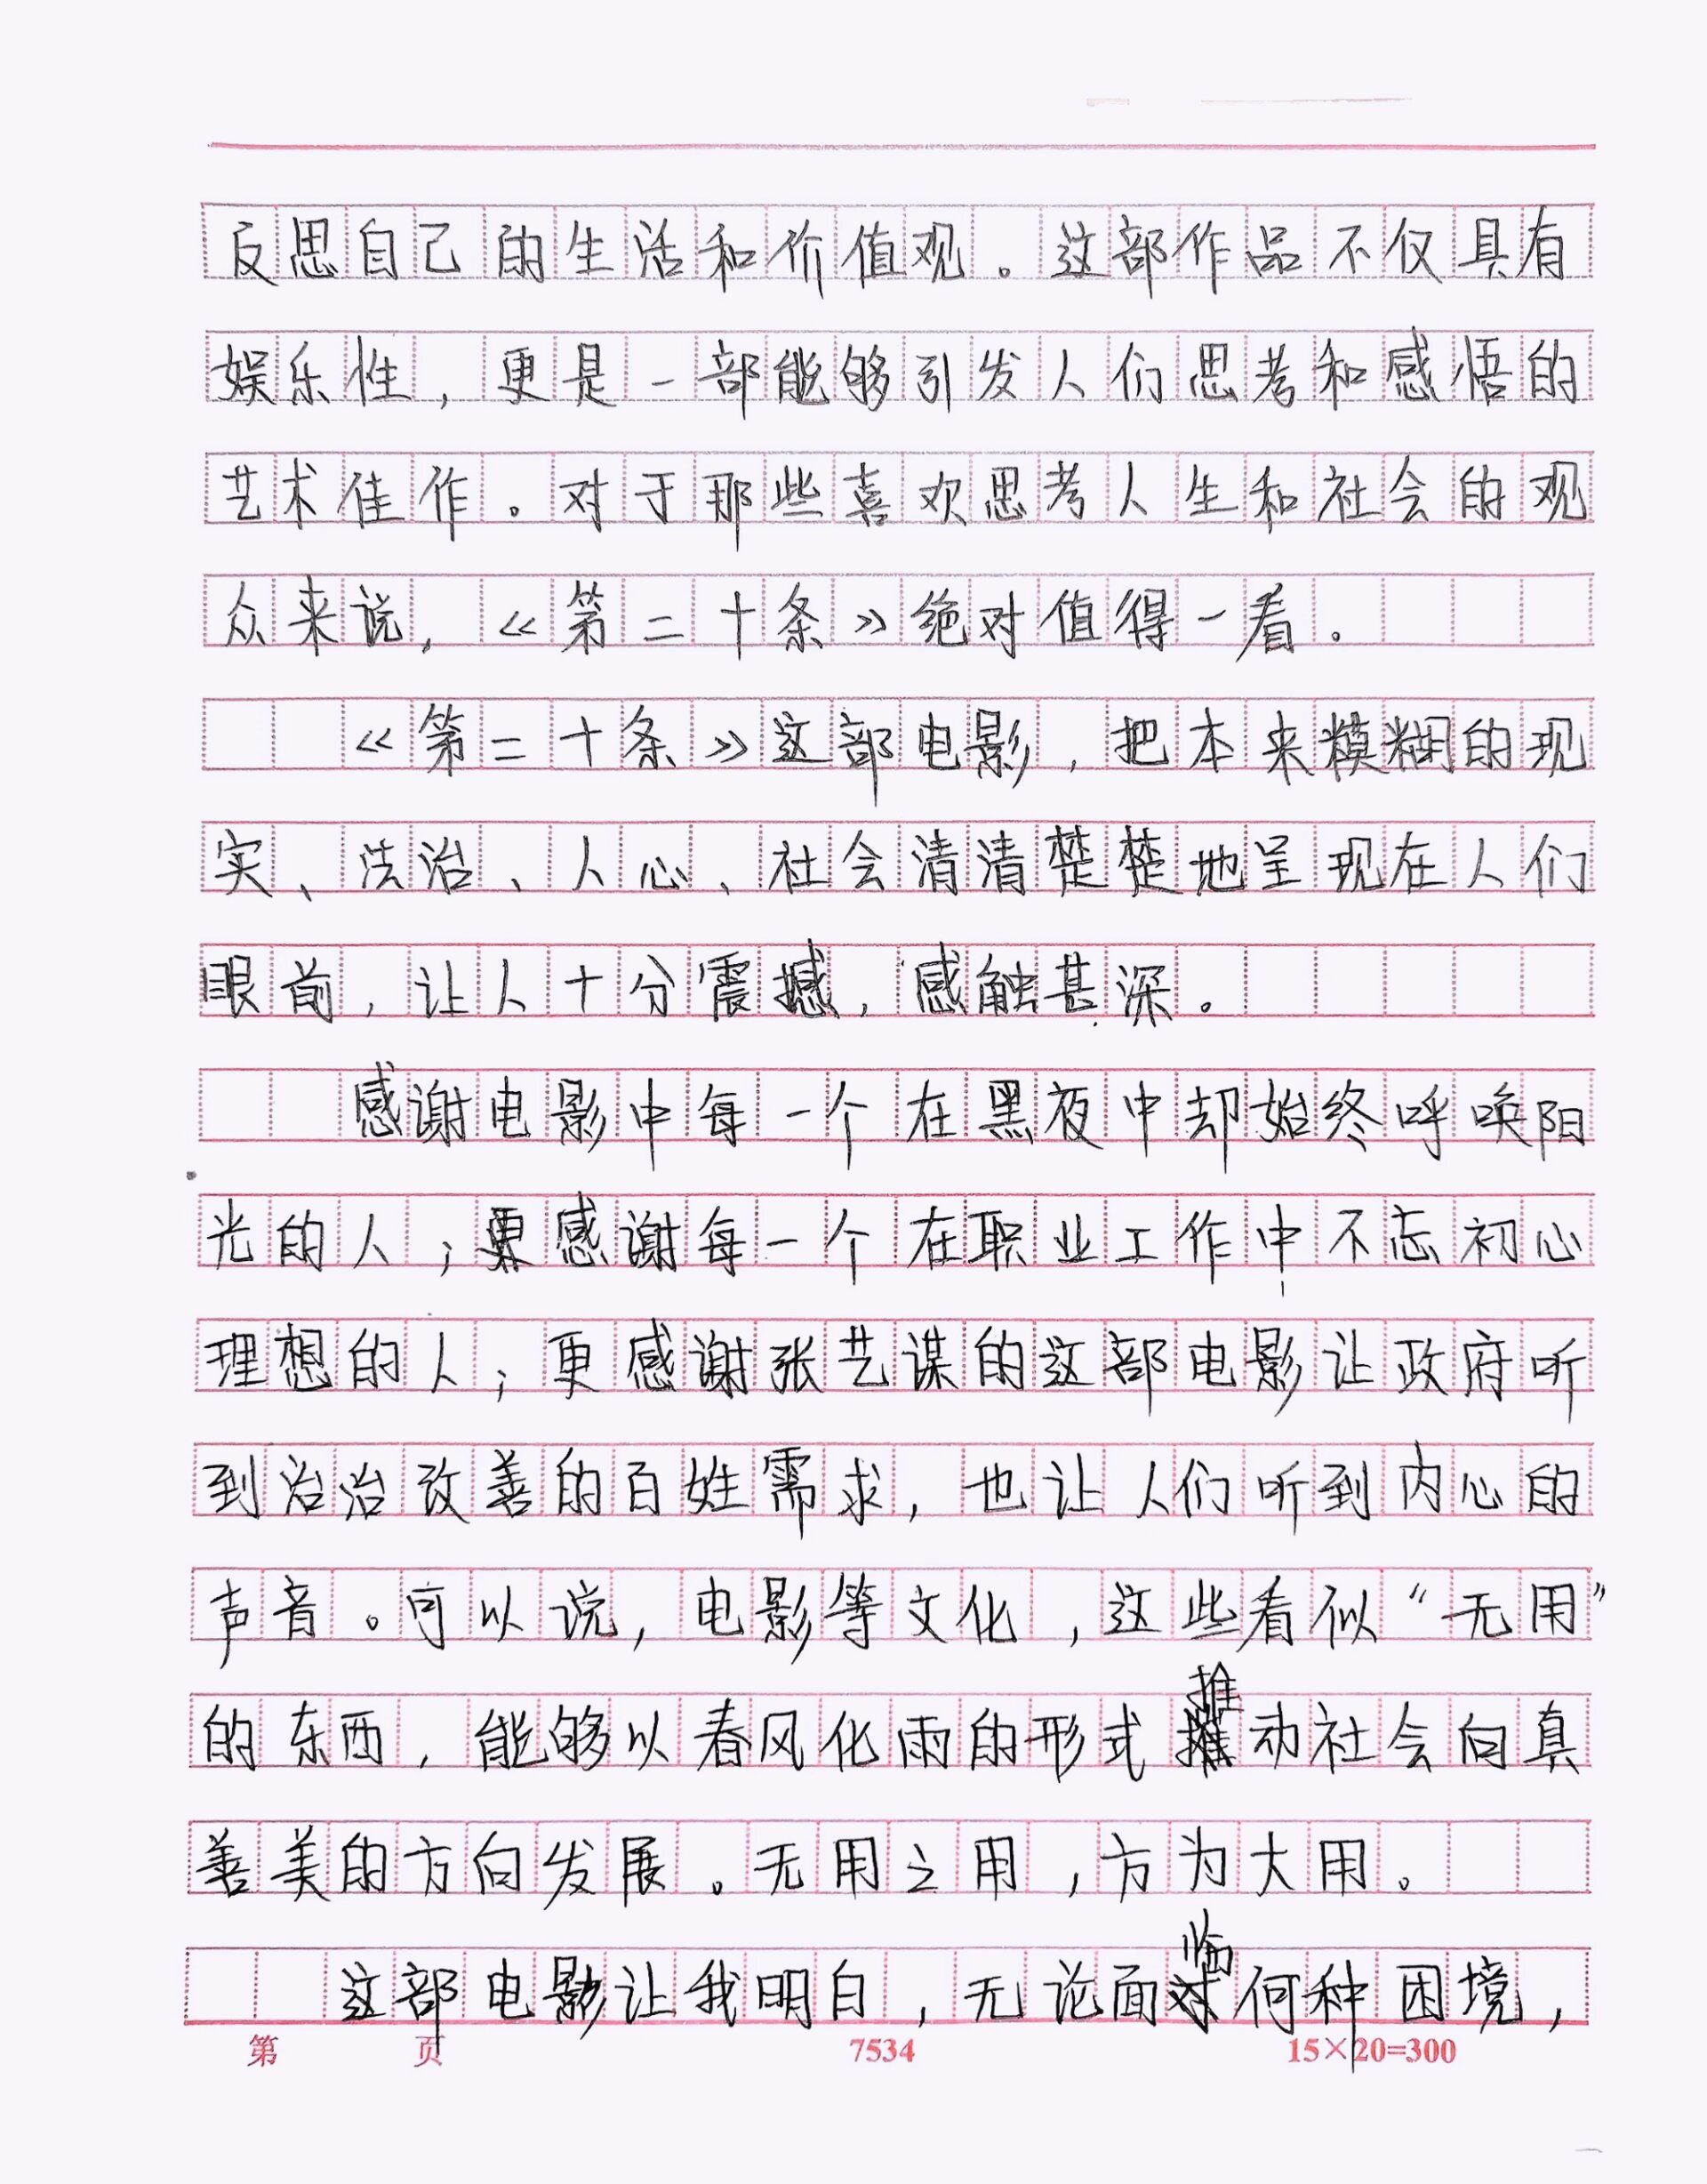 反思自己的生活和价值观。这部作品不仅具有
娱乐性，更是一部能够引发人们思考和感悟的
艺术佳作。对于那些喜欢思考人生和社会的观
众来说，《第二十条》绝对值得一看。
《第二十条》这部电影，把本来模糊的现
实、法治、人心、社会清清楚楚地呈现在人们
眼前，让人十分震撼，感触甚深。
感谢电影中每一个在黑夜中却始终呼唤阳
光的人；更感谢每一个在职业工作中不忘初心
理想的人；更感谢张艺谋的这部电影让政府听
到治治改善的百姓需求，也让人们听到内心的
声音。可以说，电影等文化，这些看似“无用”
的东西，能够以春风化雨的形式推动社会向真
善美的方向发展。无用之用，方为大用。
这部电影让我明白，无论面临何种困境，
第 页 7534 15×20=300